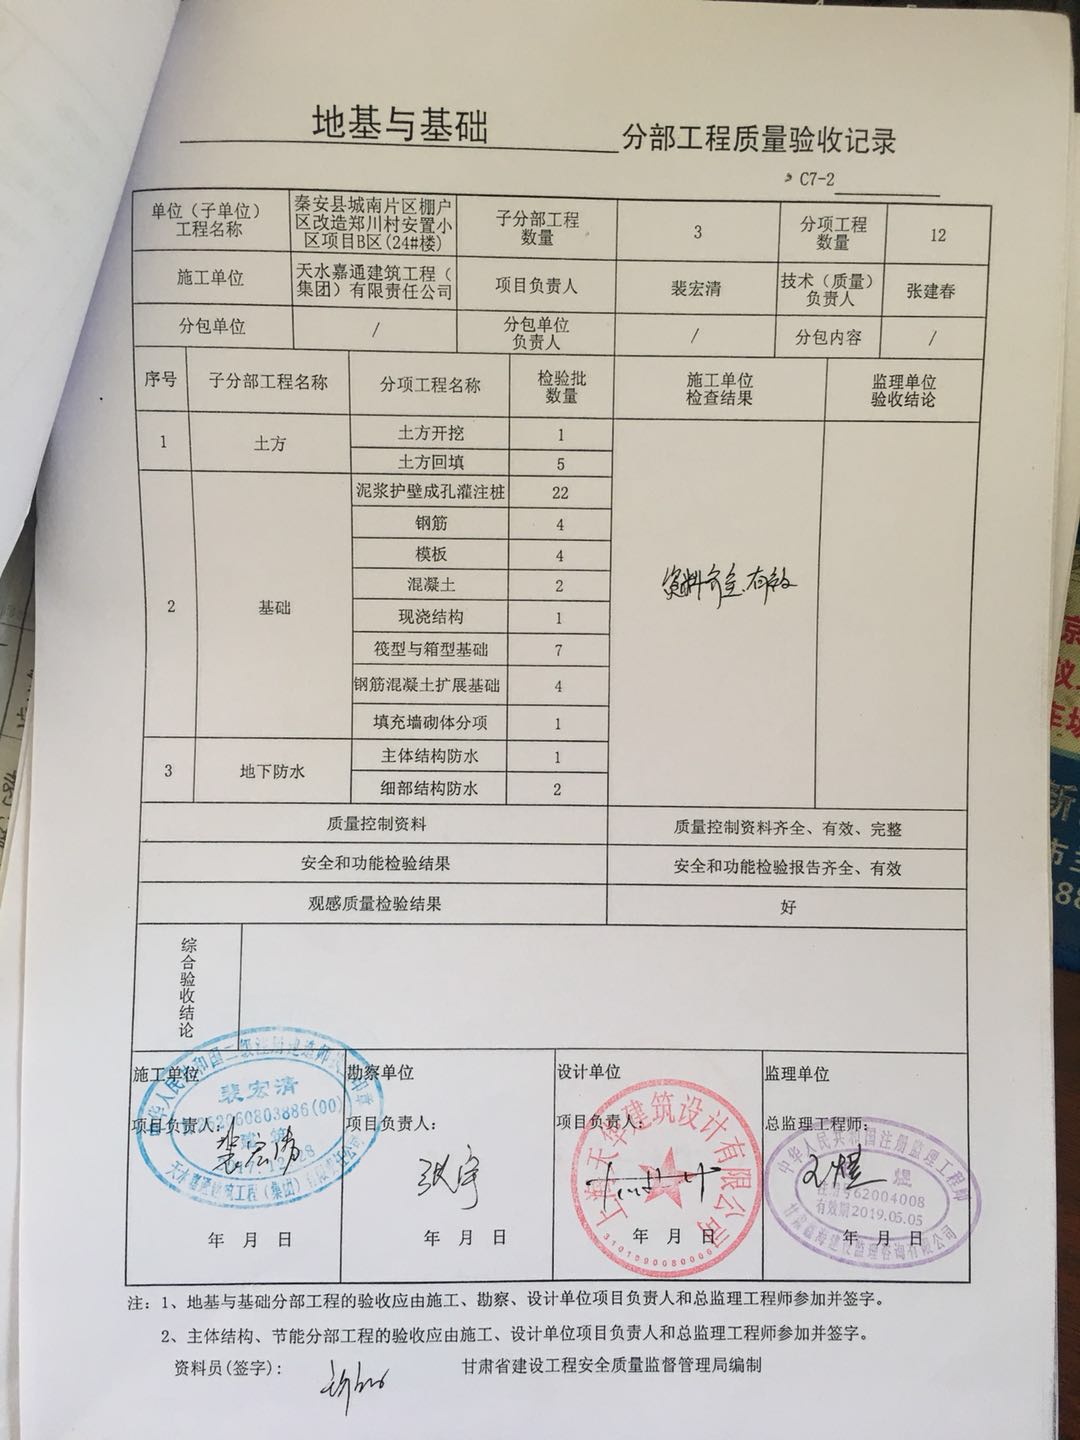 地基与基础 分部工程质量验收记录
C7-2
单位（子单位）工程名称 秦安县城南片区棚户区改造郑川村安置小区项目B区(24#楼) 子分部工程数量 3 分项工程数量 12
施工单位 天水嘉通建筑工程（集团）有限责任公司 项目负责人 裴宏清 技术（质量）负责人 张建春
分包单位 / 分包单位负责人 / 分包内容 /
序号 子分部工程名称 分项工程名称 检验批数量 施工单位检查结果 监理单位验收结论
1 土方 土方开挖 1
土方回填 5
2 基础 泥浆护壁成孔灌注桩 22
钢筋 4
模板 4
混凝土 2
现浇结构 1
筏型与箱型基础 7
钢筋混凝土扩展基础 4
填充墙砌体分项 1
资料齐全、有效
3 地下防水 主体结构防水 1
细部结构防水 2
质量控制资料 质量控制资料齐全、有效、完整
安全和功能检验结果 安全和功能检验报告齐全、有效
观感质量检验结果 好
综合验收结论
施工单位 勘察单位 设计单位 监理单位
项目负责人： 项目负责人： 项目负责人： 总监理工程师：
裴宏清
裴宏清
天水嘉通建筑工程（集团）有限责任公司
张宇
上海天华建筑设计有限公司
中华人民共和国注册监理工程师
王煜
62004008
有效期2019.05.05
年 月 日 年 月 日 年 月 日 年 月 日
注：1、地基与基础分部工程的验收应由施工、勘察、设计单位项目负责人和总监理工程师参加并签字。
2、主体结构、节能分部工程的验收应由施工、设计单位项目负责人和总监理工程师参加并签字。
资料员(签字)： 甘肃省建设工程安全质量监督管理局编制